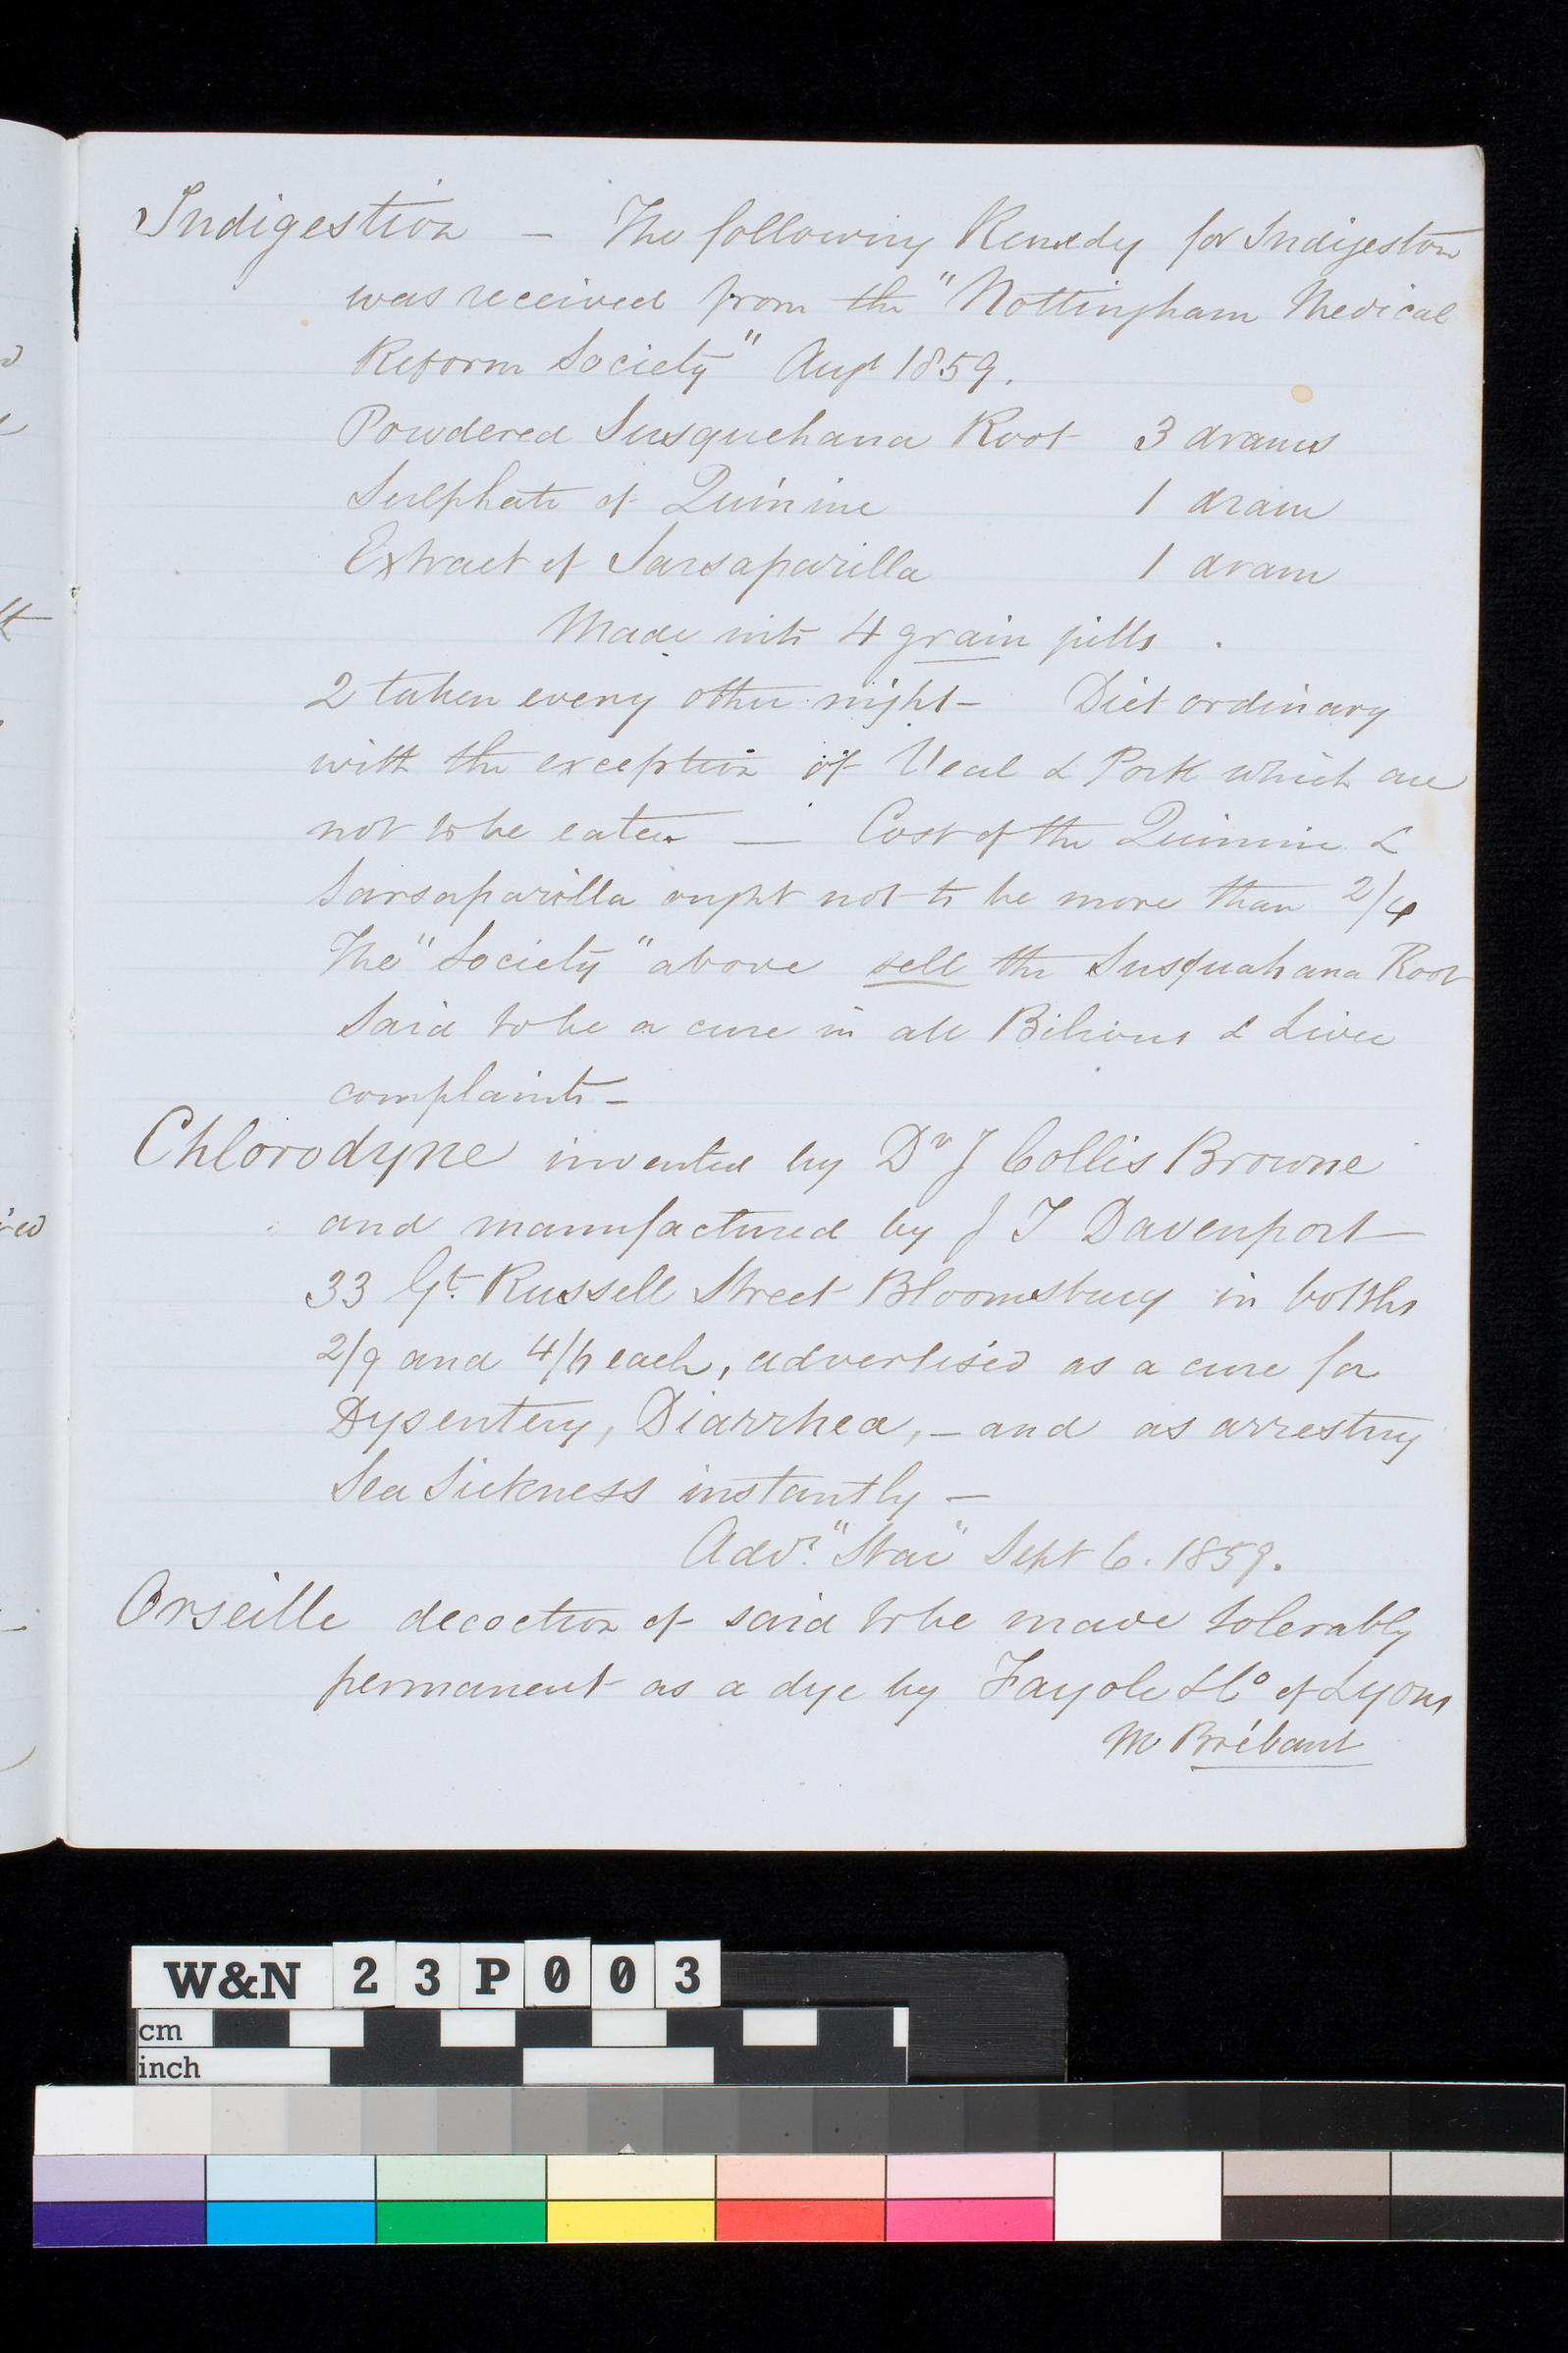 Indigestion – The following Remedy for Indigestion
was received from the "Nottingham Medical
Reform Society" Augt 1859.
Powdered Susquehana Root 3 drams
Sulphate of Quinine 1 dram
Extract of Sarsaparilla 1 dram
Made into 4 grain pills.
2 taken every other night – Diet ordinary
with the exception of Veal & Pork which are
not to be eaten — Cost of the Quinine &
Sarsaparilla ought not to be more than 2/4
The "Society" above sell the Susquahana Root
Said to be a cure in all Bilious & Liver
complaints –
Chlorodyne invented by Dr J Collis Browne
and manufactured by J T Davenport
33 Gt. Russell Street Bloomsbury in bottles
2/9 and 4/6 each, advertised as a cure for
Dysentery, Diarrhea, – and as arresting
Sea Sickness instantly –
Advt. "Star" Sept 6. 1859.
Orseille decoction of said to be made tolerably
permanent as a dye by Fayole & Co of Lyons
M Brébant
W&N 23P003
cm
inch